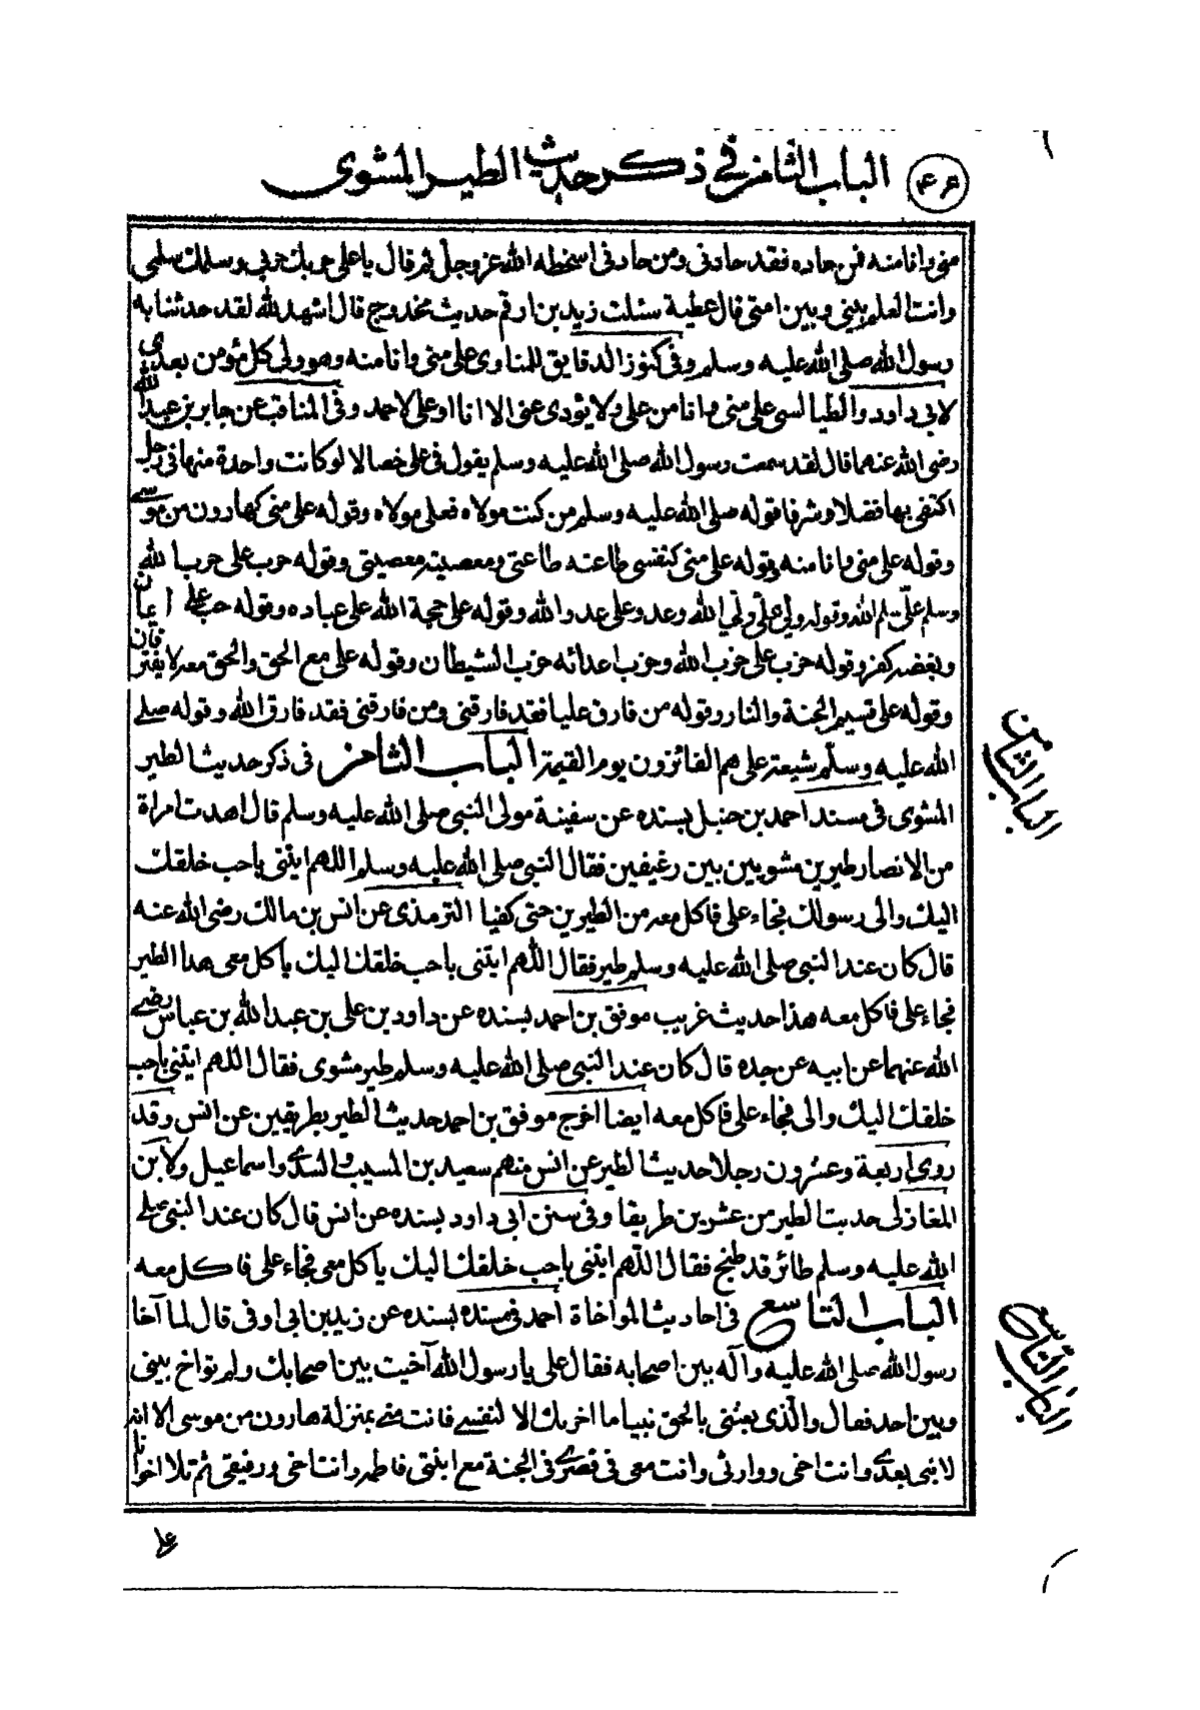 الباب الثامن في ذكر حديث الطير المشوى
منى وانا منه فمن حاده فقد حادنى ومن حادنى اسخطه الله عز وجل ثم قال يا على حربك حربى وسلمك سلمى
وانت العلم بينى وبين امتى قال عطية سئلت زيد بن ارقم حديث مخدوج قال اشهد لله لقد حدثنا به
رسول الله صلى الله عليه وسلم وفى كنوز الدقايق للمناوى على منى وانا منه وهو ولى كل مؤمن بعدى
لابى داود والطيالسى على منى وانا من على ولا يؤدى عنى الا انا او على لاحمد وفى المناقب عن جابر بن عبد الله
رضى الله عنهما قال لقد سمعت رسول الله صلى الله عليه وسلم يقول فى على خصالا لو كانت واحدة منها فى رجل
اكتفى بها فضلا وشرفا قوله صلى الله عليه وسلم من كنت مولاه فعلى مولاه وقوله على منى كهارون من موسى
وقوله على منى وانا منه وقوله على منى كنفسى طاعته طاعتى ومعصيته معصيتى وقوله حرب على حرب الله
وسلم على سلم الله وقوله ولى على ولى الله وعدو على عدو الله وقوله على حجة الله على عباده وقوله حب على ايمان
وبغضه كفر وقوله حزب على حزب الله وحزب اعدائه حزب الشيطان وقوله على مع الحق والحق معه لا يفترقان
وقوله على قسيم الجنة والنار وقوله من فارق عليا فقد فارقنى ومن فارقنى فقد فارق الله وقوله صلى
الله عليه وسلم شيعة على هم الفائزون يوم القيمة الباب الثامن فى ذكر حديث الطير
المشوى فى مسند احمد بن حنبل بسنده عن سفينة مولى النبى صلى الله عليه وسلم قال اهدت امراة
من الانصار طيرين مشويين بين رغيفين فقال النبى صلى الله عليه وسلم اللهم ايتنى باحب خلقك
اليك والى رسولك فجاء على فاكل معه من الطيرين حتى كفيا الترمذى عن انس بن مالك رضى الله عنه
قال كان عند النبى صلى الله عليه وسلم طير فقال اللهم ايتنى باحب خلقك اليك ياكل معى هذا الطير
فجاء على فاكل معه هذا حديث غريب موفق بن احمد بسنده عن داود بن على بن عبد الله بن عباس رضى
الله عنهما عن ابيه عن جده قال كان عند النبى صلى الله عليه وسلم طير مشوى فقال اللهم ايتنى باحب
خلقك اليك والى فجاء على فاكل معه ايضا اخرج موفق بن احمد حديث الطير بطريقين عن انس وقد
روى اربعة وعشرون رجلا حديث الطير عن انس منهم سعيد بن المسيب والسدى واسماعيل ولابن
المغازلى حديث الطير من عشرين طريقا وفى سنن ابى داود بسنده عن انس قال كان عند النبى صلى
الله عليه وسلم طائر قد طبخ فقال اللهم ايتنى باحب خلقك اليك ياكل معى فجاء على فاكل معه
الباب التاسع فى احاديث المواخاة احمد فى مسنده بسنده عن زيد بن ابى اوفى قال لما آخا
رسول الله صلى الله عليه وآله بين اصحابه فقال على يا رسول الله آخيت بين اصحابك ولم تواخ بينى
وبين احد فقال والذى بعثنى بالحق نبيا ما اخرتك الا لنفسى فانت منى بمنزلة هارون من موسى الا انه
لا نبى بعدى وانت اخى ووارثى وانت معى فى قصرى فى الجنة مع ابنتى فاطمه وانت اخى ورفيقى ثم تلا اخوانا
على
الباب الثامن
الباب التاسع